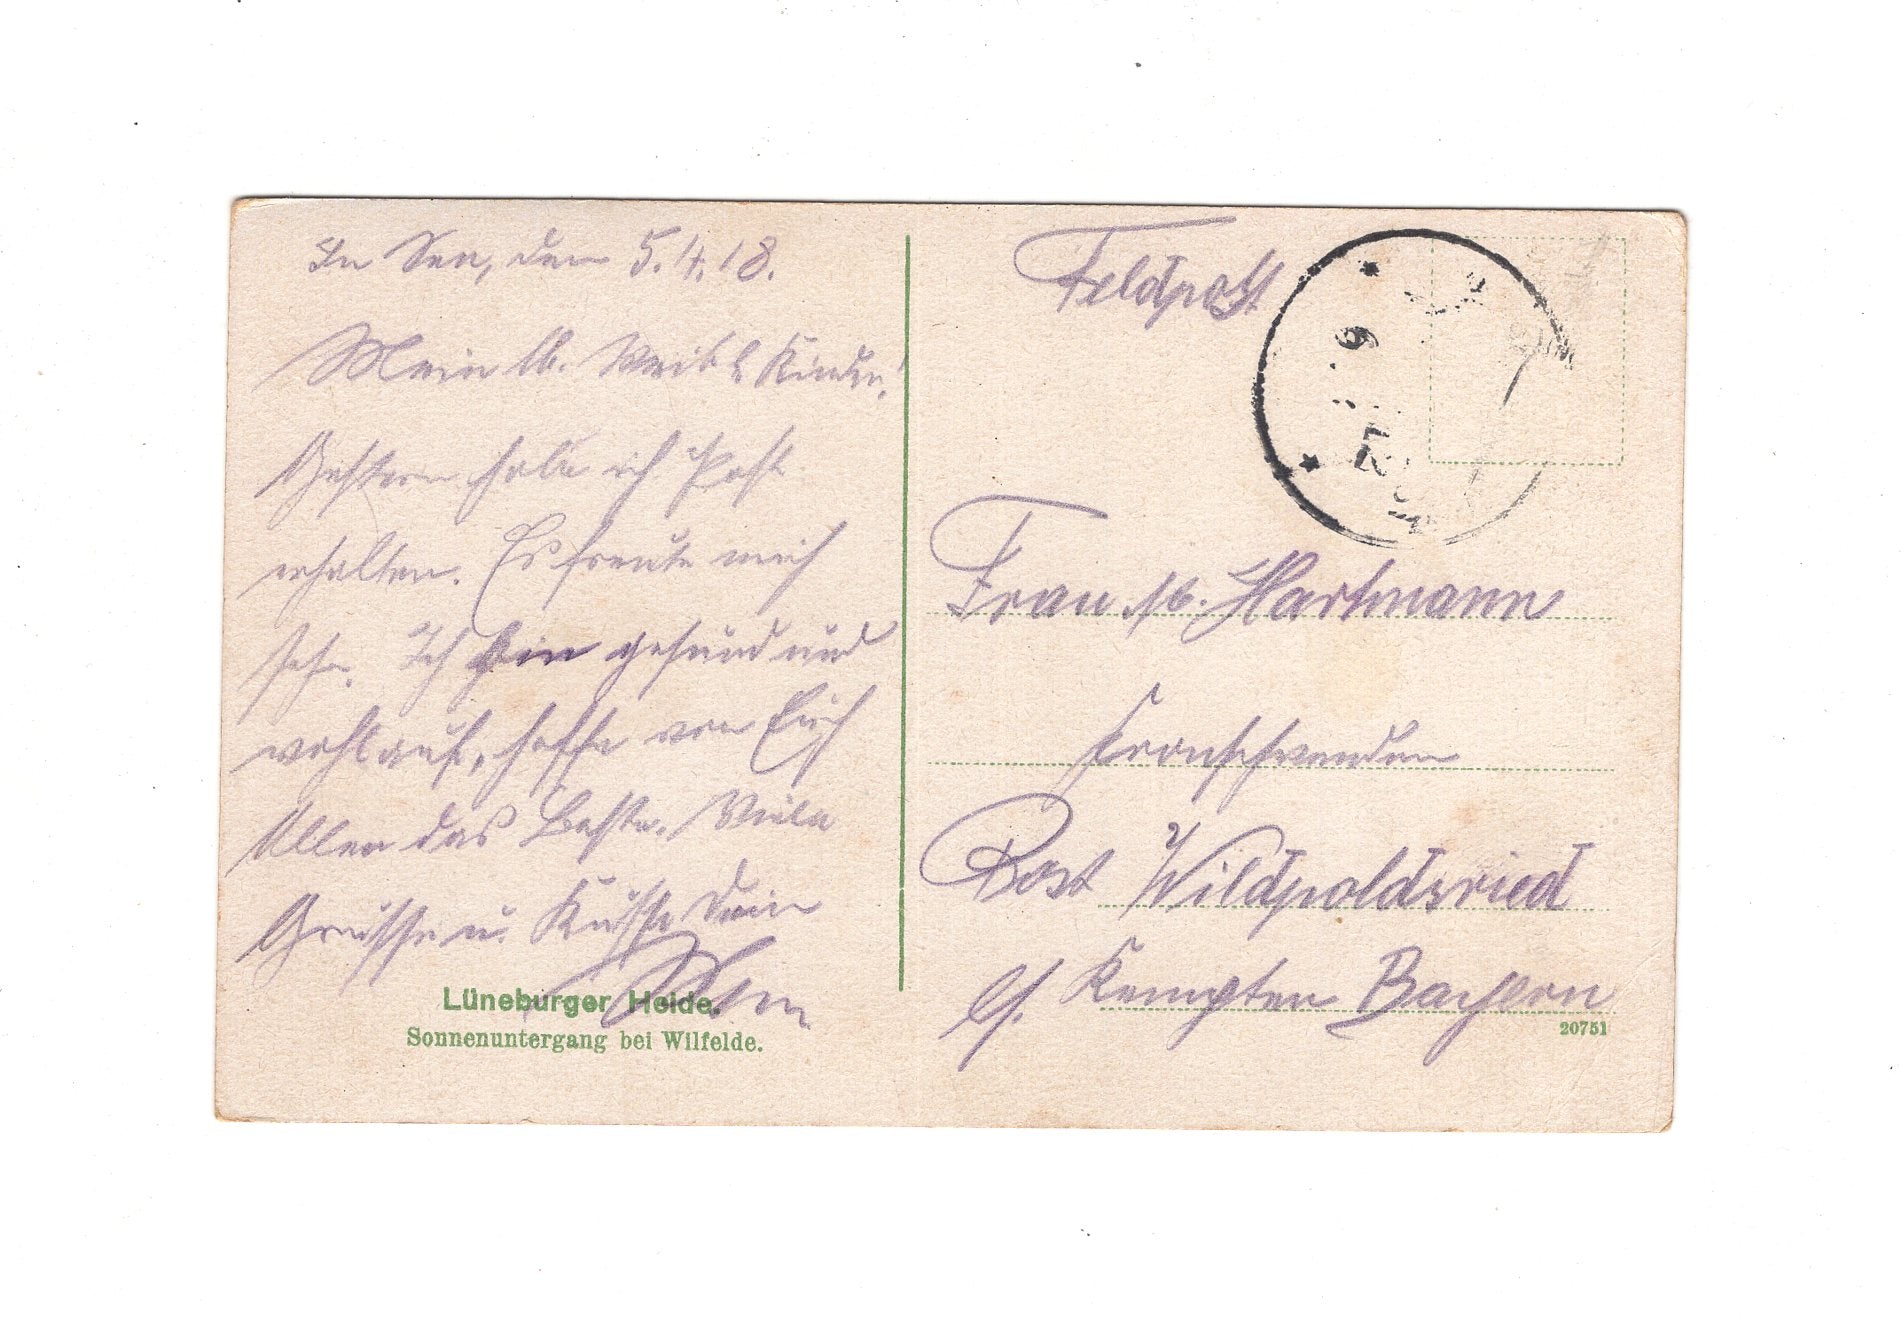 In See, den 5.4.18.
Mein lb. Weib & Kinder!
Gestern habe ich Post
erhalten. Es freute mich
sehr. Ich bin gesund und
wohlauf, hoffe von Euch
Allen das Beste. Viele
Grüsse u. Küsse Dein
Lüneburger Heide.
Sonnenuntergang bei Wilfelde.
Feldpost
Frau Hartmann
Post Wildpoldsried
b/. Kempten Bayern
20751